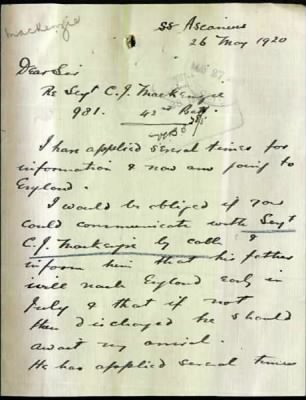 Mackenzie
SS Ascanius
26 May 1920
Dear Sir
Re Sergt C.J. Mackenzie
981. 42nd Batt.
I have applied several times for
information & now am going to
England.
I would be obliged if you
could communicate with Sergt
C.J. Mackenzie by cable &
inform him that his father
will reach England early in
July & that if not
then discharged he should
await my arrival.
He has applied several times